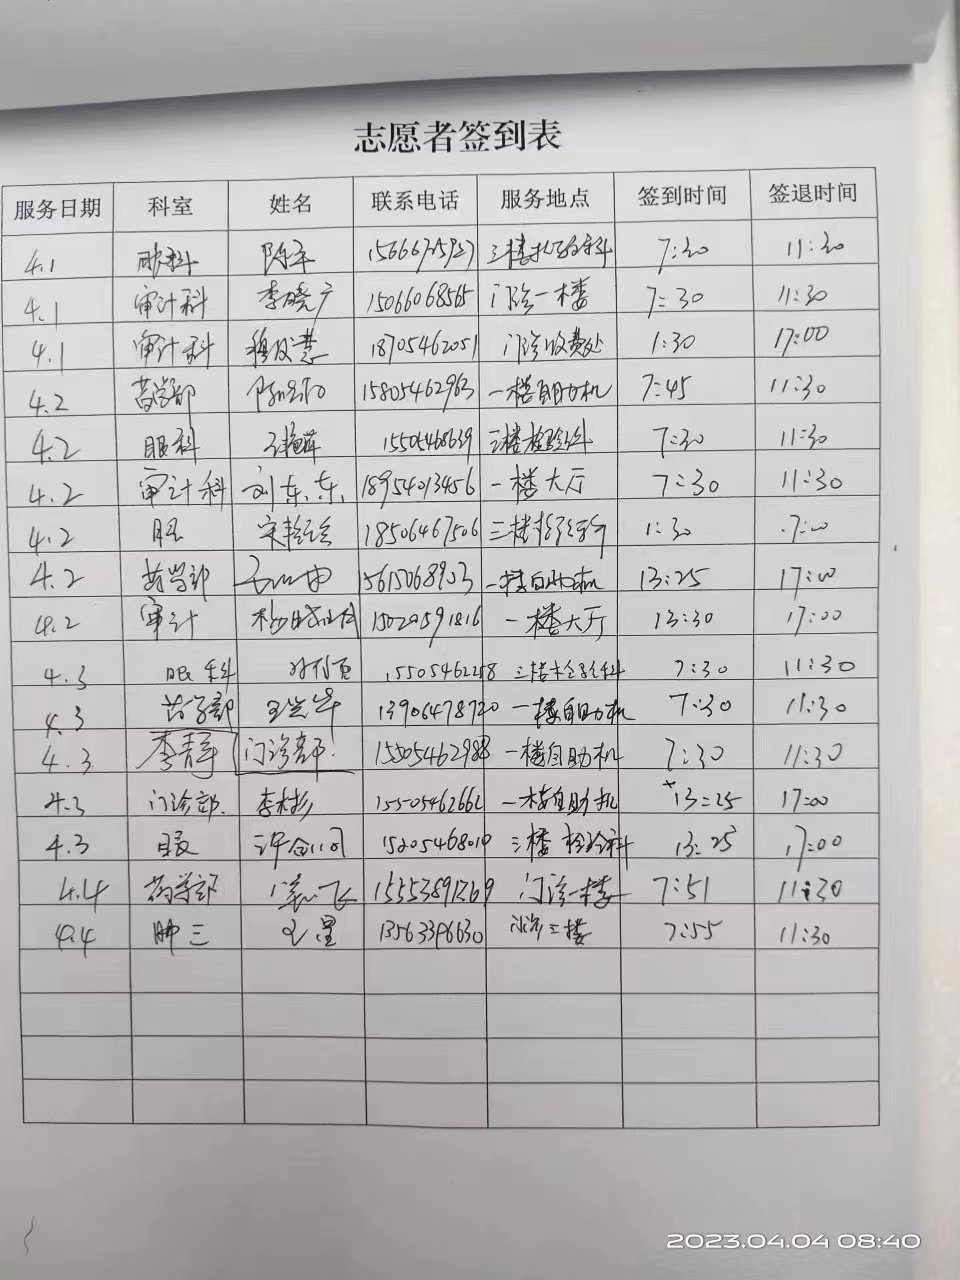 志愿者签到表
服务日期 科室 姓名 联系电话 服务地点 签到时间 签退时间
4.1 7:30 11:30
4.1 审计科 李晓广 15066068565 门诊一楼 7:30 11:30
4.1 审计科 18705462051 门诊收费处 1:30 17:00
4.2 药学部 15805462963 一楼自助机 7:45 11:30
4.2 眼科 15505468639 三楼检验科 7:30 11:30
4.2 审计科 刘东东 18954013456 一楼大厅 7:30 11:30
4.2 18506467506 三楼 1:30 17:00
4.2 药学部 15615068903 一楼自助机 13:25 17:00
4.2 审计 15020591816 一楼大厅 13:30 17:00
4.3 眼科 15505462258 三楼检验科 7:30 11:30
4.3 药学部 13906478720 一楼自助机 7:30 11:30
4.3 李青 门诊部 15505462988 一楼自助机 7:30 11:30
4.3 门诊部 李彬彬 15505462662 一楼自助机 13:25 17:00
4.3 15205468010 三楼检验科 13:25 17:00
4.4 药学部 飞 15553891269 门诊一楼 7:51 11:30
4.4 肿三 王星 13563396630 门诊三楼 7:55 11:30
2023.04.04 08:40